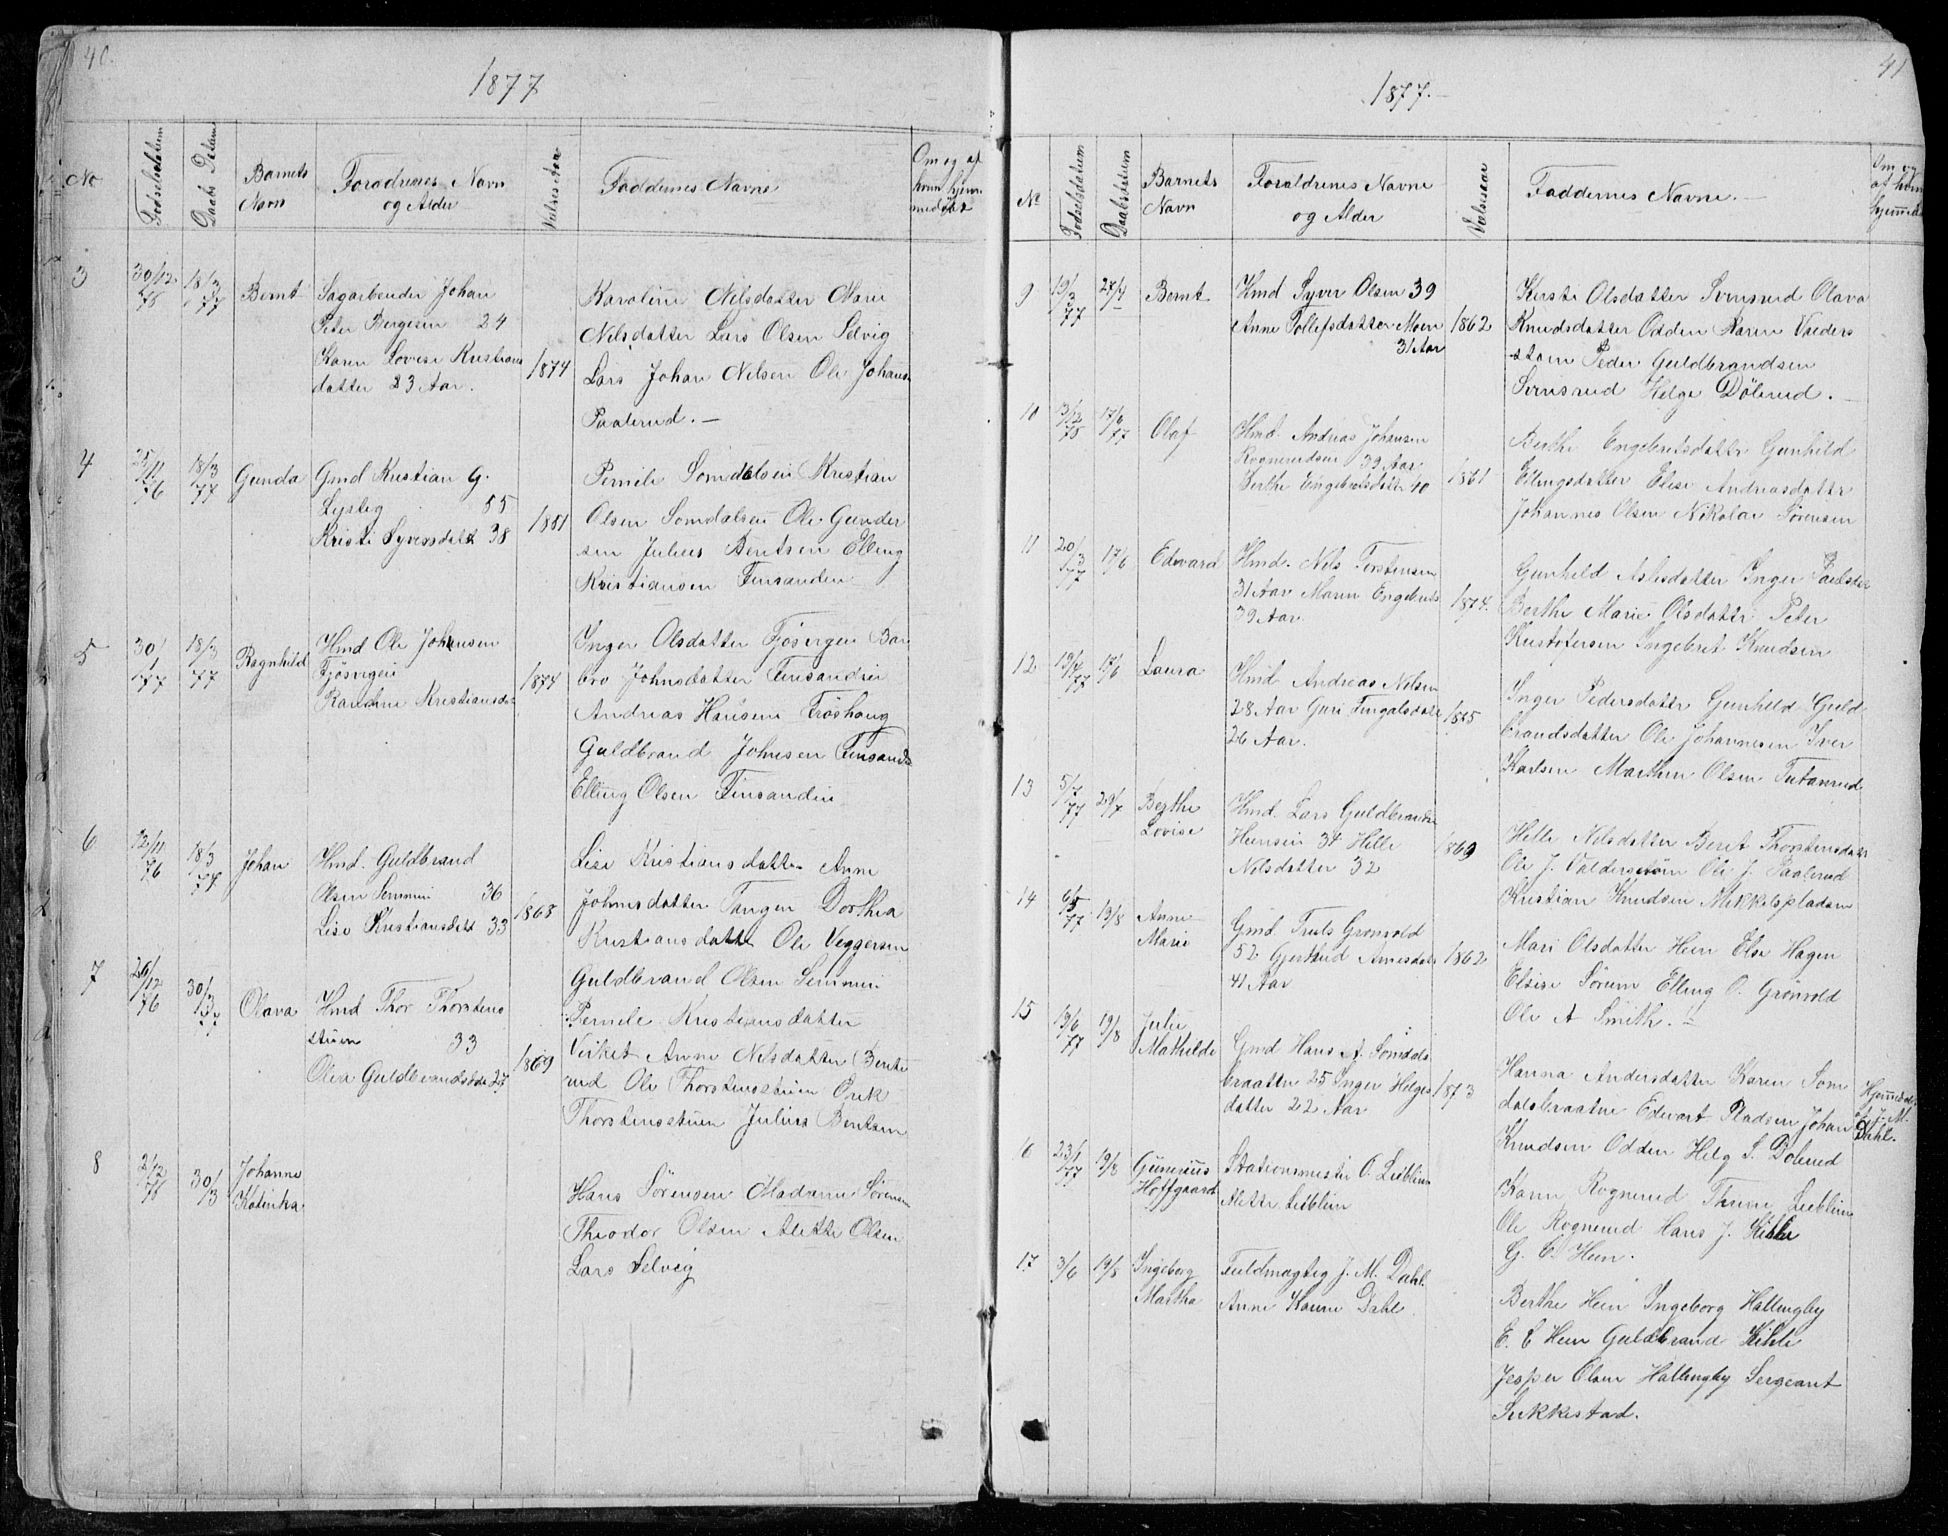 40.
1877
No
Fødselsdatum
Daabs Datum
Barnets
Navn
Forældrenes Navn
og Alder
Vielses Aar
Faddernes Navne
Om og af
hvem hjem
medøbt
3
30/12
75
18/3
77
Bernt
Sagarbeider Johan
Peter Bergesen 24
Karen Lovise Kristians
datter 23 Aar.
1874
Karoline Nilsdatter Maren
Nilsdatter Lars Olsen Selvig
Lars Johan Nilsen Ole Johans
Paalerud.—
4
25/11
76
18/3
77
Gunda
Gmd Kristian G.
Lystig 55
Kristi Syversdatt 38
1881
Pernele Somdalsei Kristian
Olsen Somdalsei Ole Gunder
sen Julius Bentsen Elling
Kristiansen Finsanden
5
30/1
77
18/3
77
Ragnhild
Hmd Ole Johnsen
Fjøsvigen
Karoline Kristiansda
1874
Inger Olsdatter Fjøsvigen Bar
bro Johnsdatter Finsandei
Andreas Hansen Frøshaug
Guldbrand Johnsen Finsande
Elling Olsen Finsandei
6
12/11
76
18/3
77
Johan
Hmd. Guldbrand
Olsen Semmen 36
Lise Kristiansdatt 33
1868
Lise Kristiansdatter Anne
Johnsdatter Tangen Dorthea
Kristiansdatte Ole Veggersen
Guldbrand Olsen Semmen
7
26/12
76
30/3
77
Olava
Hmd Thor Thorstens
stuen 33
Olea Guldbrandsda 27
1869
Pernele Kristiansdatter
Virket Anne Nilsdatter Bente
rud Ole Thorstensstuen Erik
Thorstensstuen Julius Bentsen
8
2/12
75
30/3
Johanne
Katinka
Hans Sørensen Madame Sørensen
Theodor Olsen Alette Olsen
Lars Selvig
41
1877.—
No
Fødselsdatum
Daabsdatum
Barnets
Navn
Forældrenes Navne
og Alder
Vielsesaar
Faddernes Navne.—
Om og
af hvem
hjemmedø
9
19/3
77
24/4
Bernt
Hmd Syver Olsen 39
Anne Tollefsdatter Moen
31 Aar
1862
Kirsti Olsdatter Svensrud Olava
Knudsdatter Odden Karen Valders
støen Peder Guldbrandsen
Svensrud Helge Dølerud.—
10
3/12
75
17/6
77
Olaf
Hmd. Andreas Johansen
Rognerudseie 39 Aar
Berthe Engebretsdatter 40
1861
Berthe Engebretsdatter Gunhild
Ellingsdatter Elise Andreasdatter
Johannes Olsen Nikolai Sørensen
11
20/3
77
17/6
Edevard
Hmd. Nils Torstensen
31 Aar Maren Engebrets
39 Aar.
1874.
Gunhild Aslesdatter Inger Paulsdat
Berthe Marie Olsdatter Peter
Kristofersen Ingebret Knudsen
12
19/4
77
17/6
Laura
Hmd Andreas Nilsen
28 Aar Guri Fingalsdatt
26 Aar.
1875
Inger Pedersdatter Gunhild Guld
brandsdatter Ole Johannesen Iver
Karlsen Marthin Olsen Tutanrud
13
5/7
77
29/7
Berthe
Lovise
Hmd. Lars Guldbrandse
Heinseie 34 Helle
Nilsdatter 32
1869
Helle Nilsdatter Beret Thorstensdat
Ole J. Valdersstøen Ole J. Paalerud
Kristian Knudsen Mikkelspladsen
14
6/5
77
19/8
Anne
Marie
Gmd. Truls Grønvold
52 Gjertrud Arnesdatt
41 Aar
1862
Mari Olsdatter Hein Else Hagen
Elsise Sørum Elling O. Grønvold
Ole A Smith.—
15
19/6
77
19/8
Julie
Mathilde
Gmd Hans A. Somdals
braatte 25 Inger Helges
datter 22 Aar
1873
Hanna Andersdatter Karen Som
dalsbraatne Edvart Pladsen Johan
Knudsen Odden Helg S. Dølerud
Hjemmedø
af J. M.
Dahl.
6
23/1
77
19/8
Gunerius
Hoffgaard
Stationsmester O. Lieblein
Alette Lieblein
Karen Rognerud Thrine Lieblein
Ole Rognerud Hans J. Kihle
G. C. Hein.
17
3/6
19/8
Ingeborg
Martha
Fuldmægtig J. M. Dahl
Anne Karine Dahl
Berthe Hein Ingeborg Hallingby
E. C Hein Guldbrand Kihle
Jesper Olsen Hallingby Sergeant
Sukkestad.